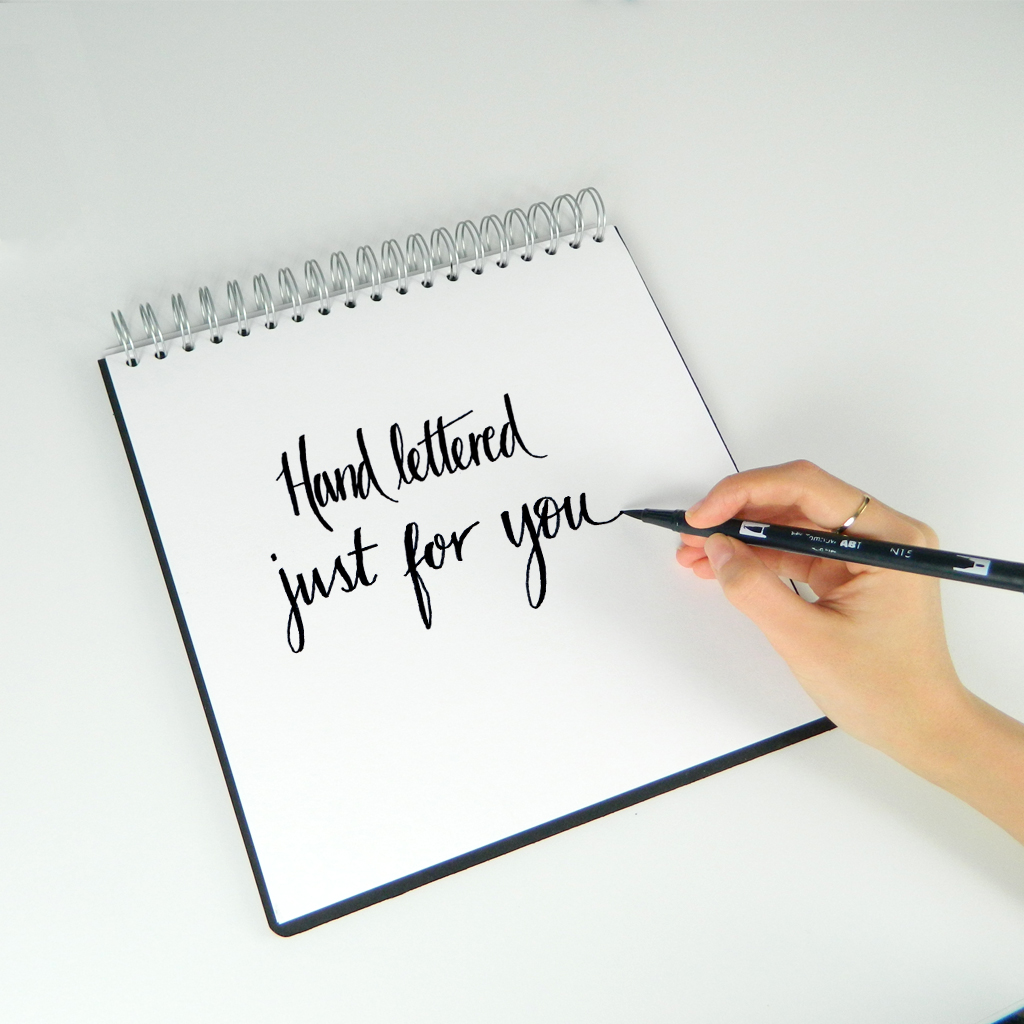 Hand lettered
just for you
ABT
N15